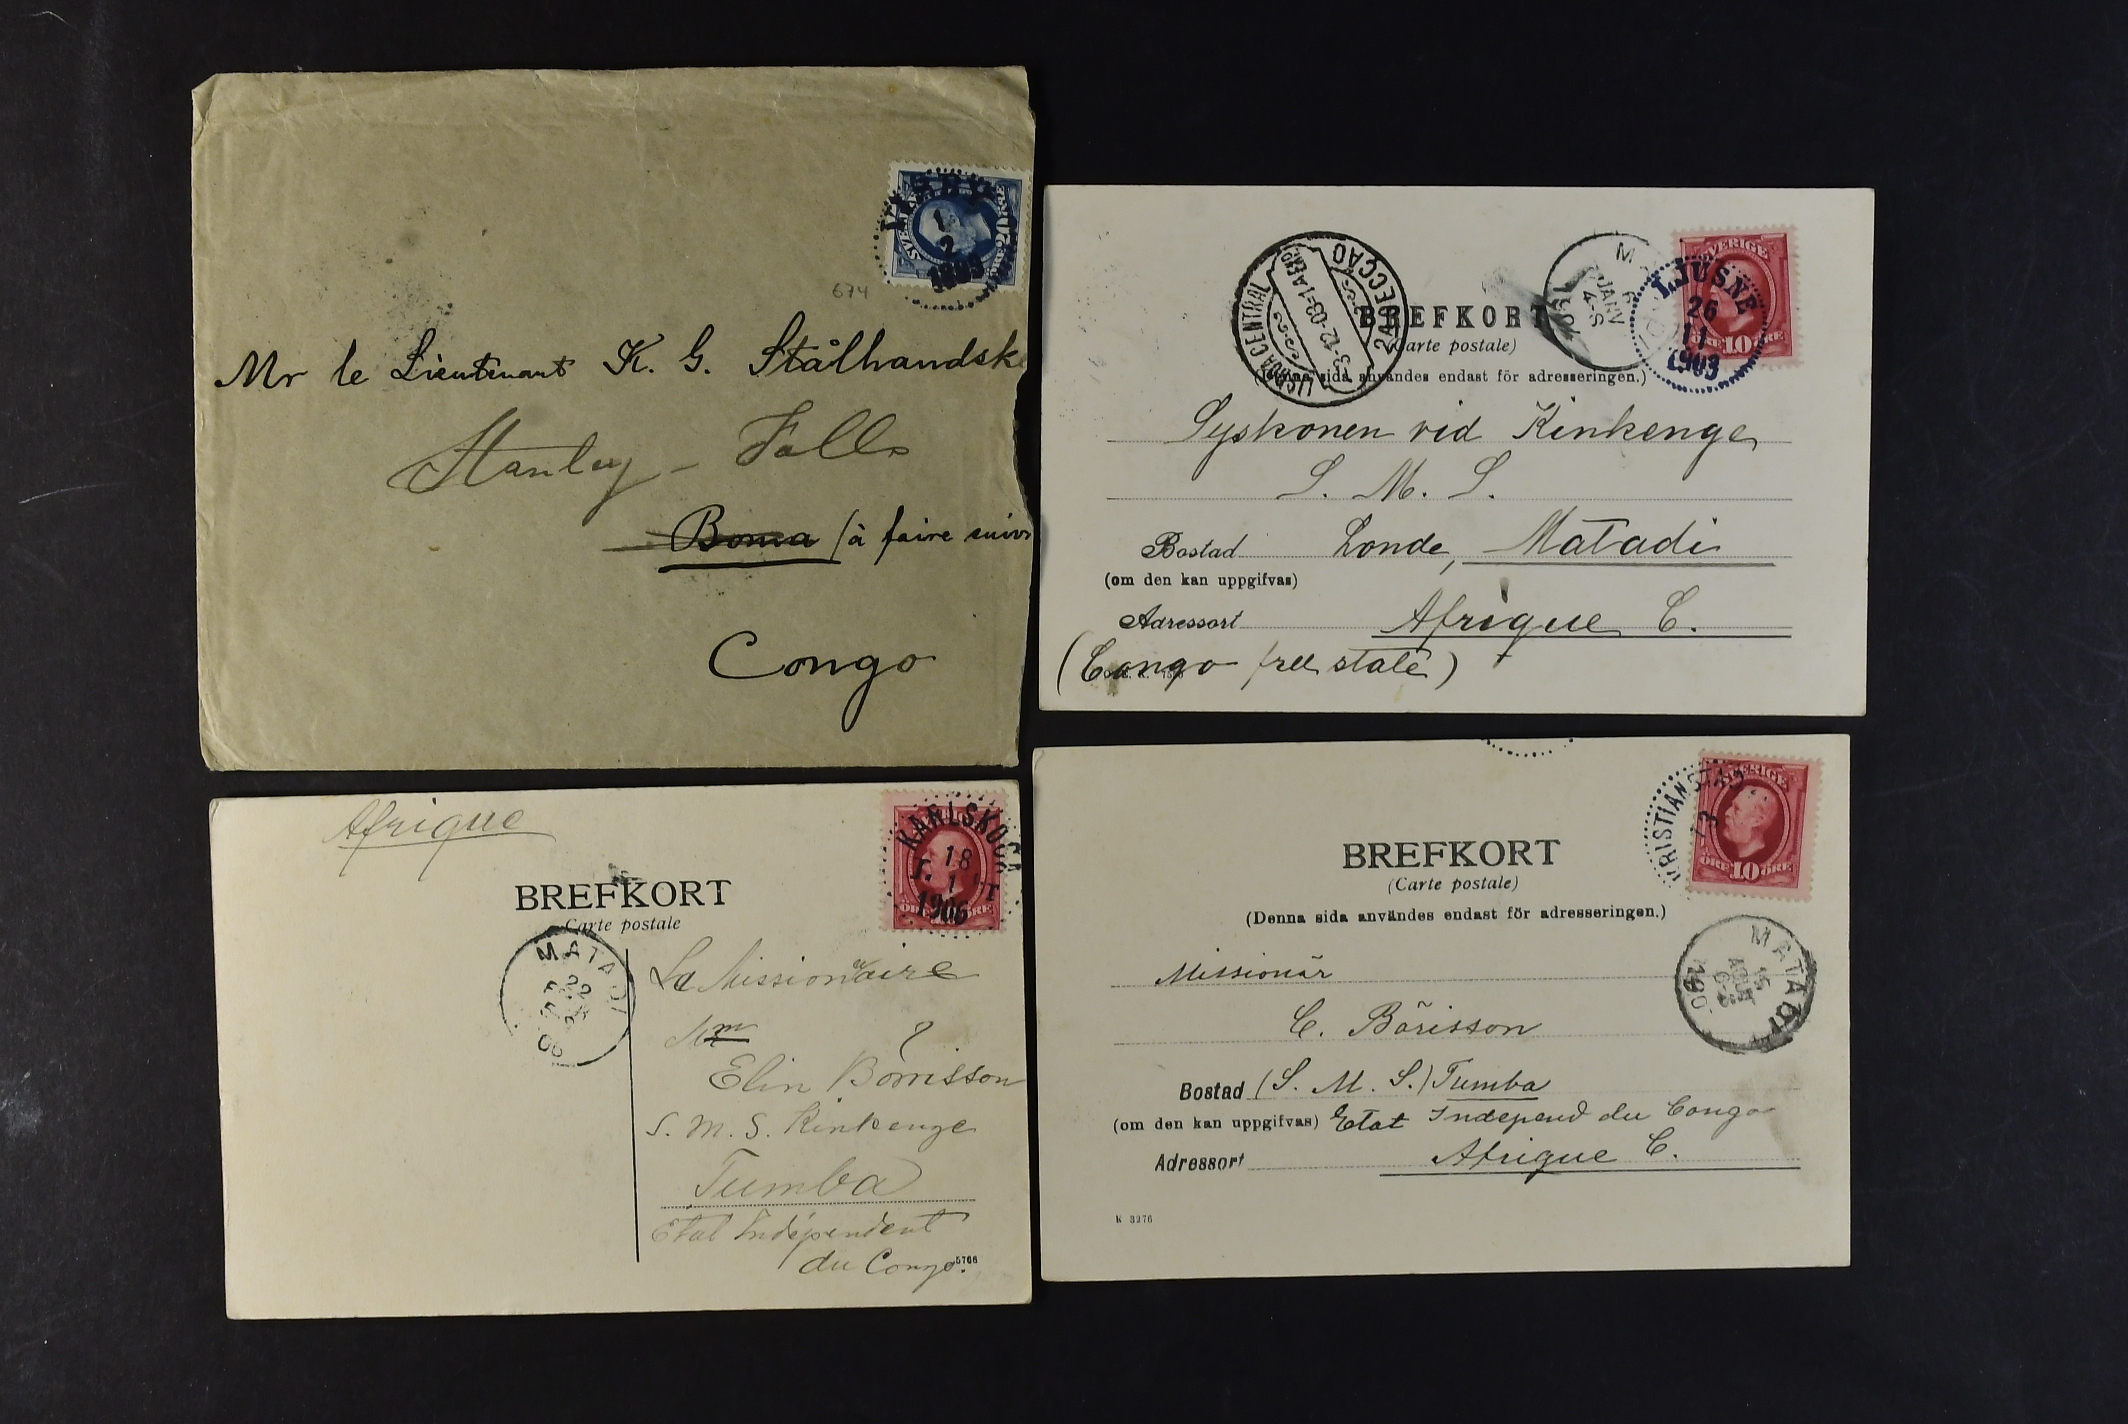 SVERIGE
20 ÖRE
2
1899
674
Mr le Lieutenant K. G. Stålhandsk
Stanley-Falls
Boma (à faire suivr
Congo
SVERIGE
ÖRE 10 ÖRE
LJUSNE
26
11
1903
6
JANV
4-S
LISBOA CENTRAL
3-12-03=1A
2A SECÇÃO
BREFKORT
(Carte postale)
(Denna sida användes endast för adresseringen.)
Syskonen vid Kinkenge
S. M. S.
Bostad Londe, Matadi
(om den kan uppgifvas)
Adressort Afrique C.
(Congo free state)
Afrique
KARLSKOGA
18
1
1906
BREFKORT
Carte postale
MATADI
22
06
La Missionaire
Elin Börrisson
S. M. S. Kinkenge
Tumba
Etat Indépendent
du Congo.
5766
SVERIGE
ÖRE 10 ÖRE
KRISTIANSTAD
BREFKORT
(Carte postale)
(Denna sida användes endast för adresseringen.)
MATADI
15
AOUT
6-S
Missionär
C. Börisson
Bostad (S. M. S.) Tumba
(om den kan uppgifvas) Etat Independ du Congo
Adressort Afrique C.
K 3276